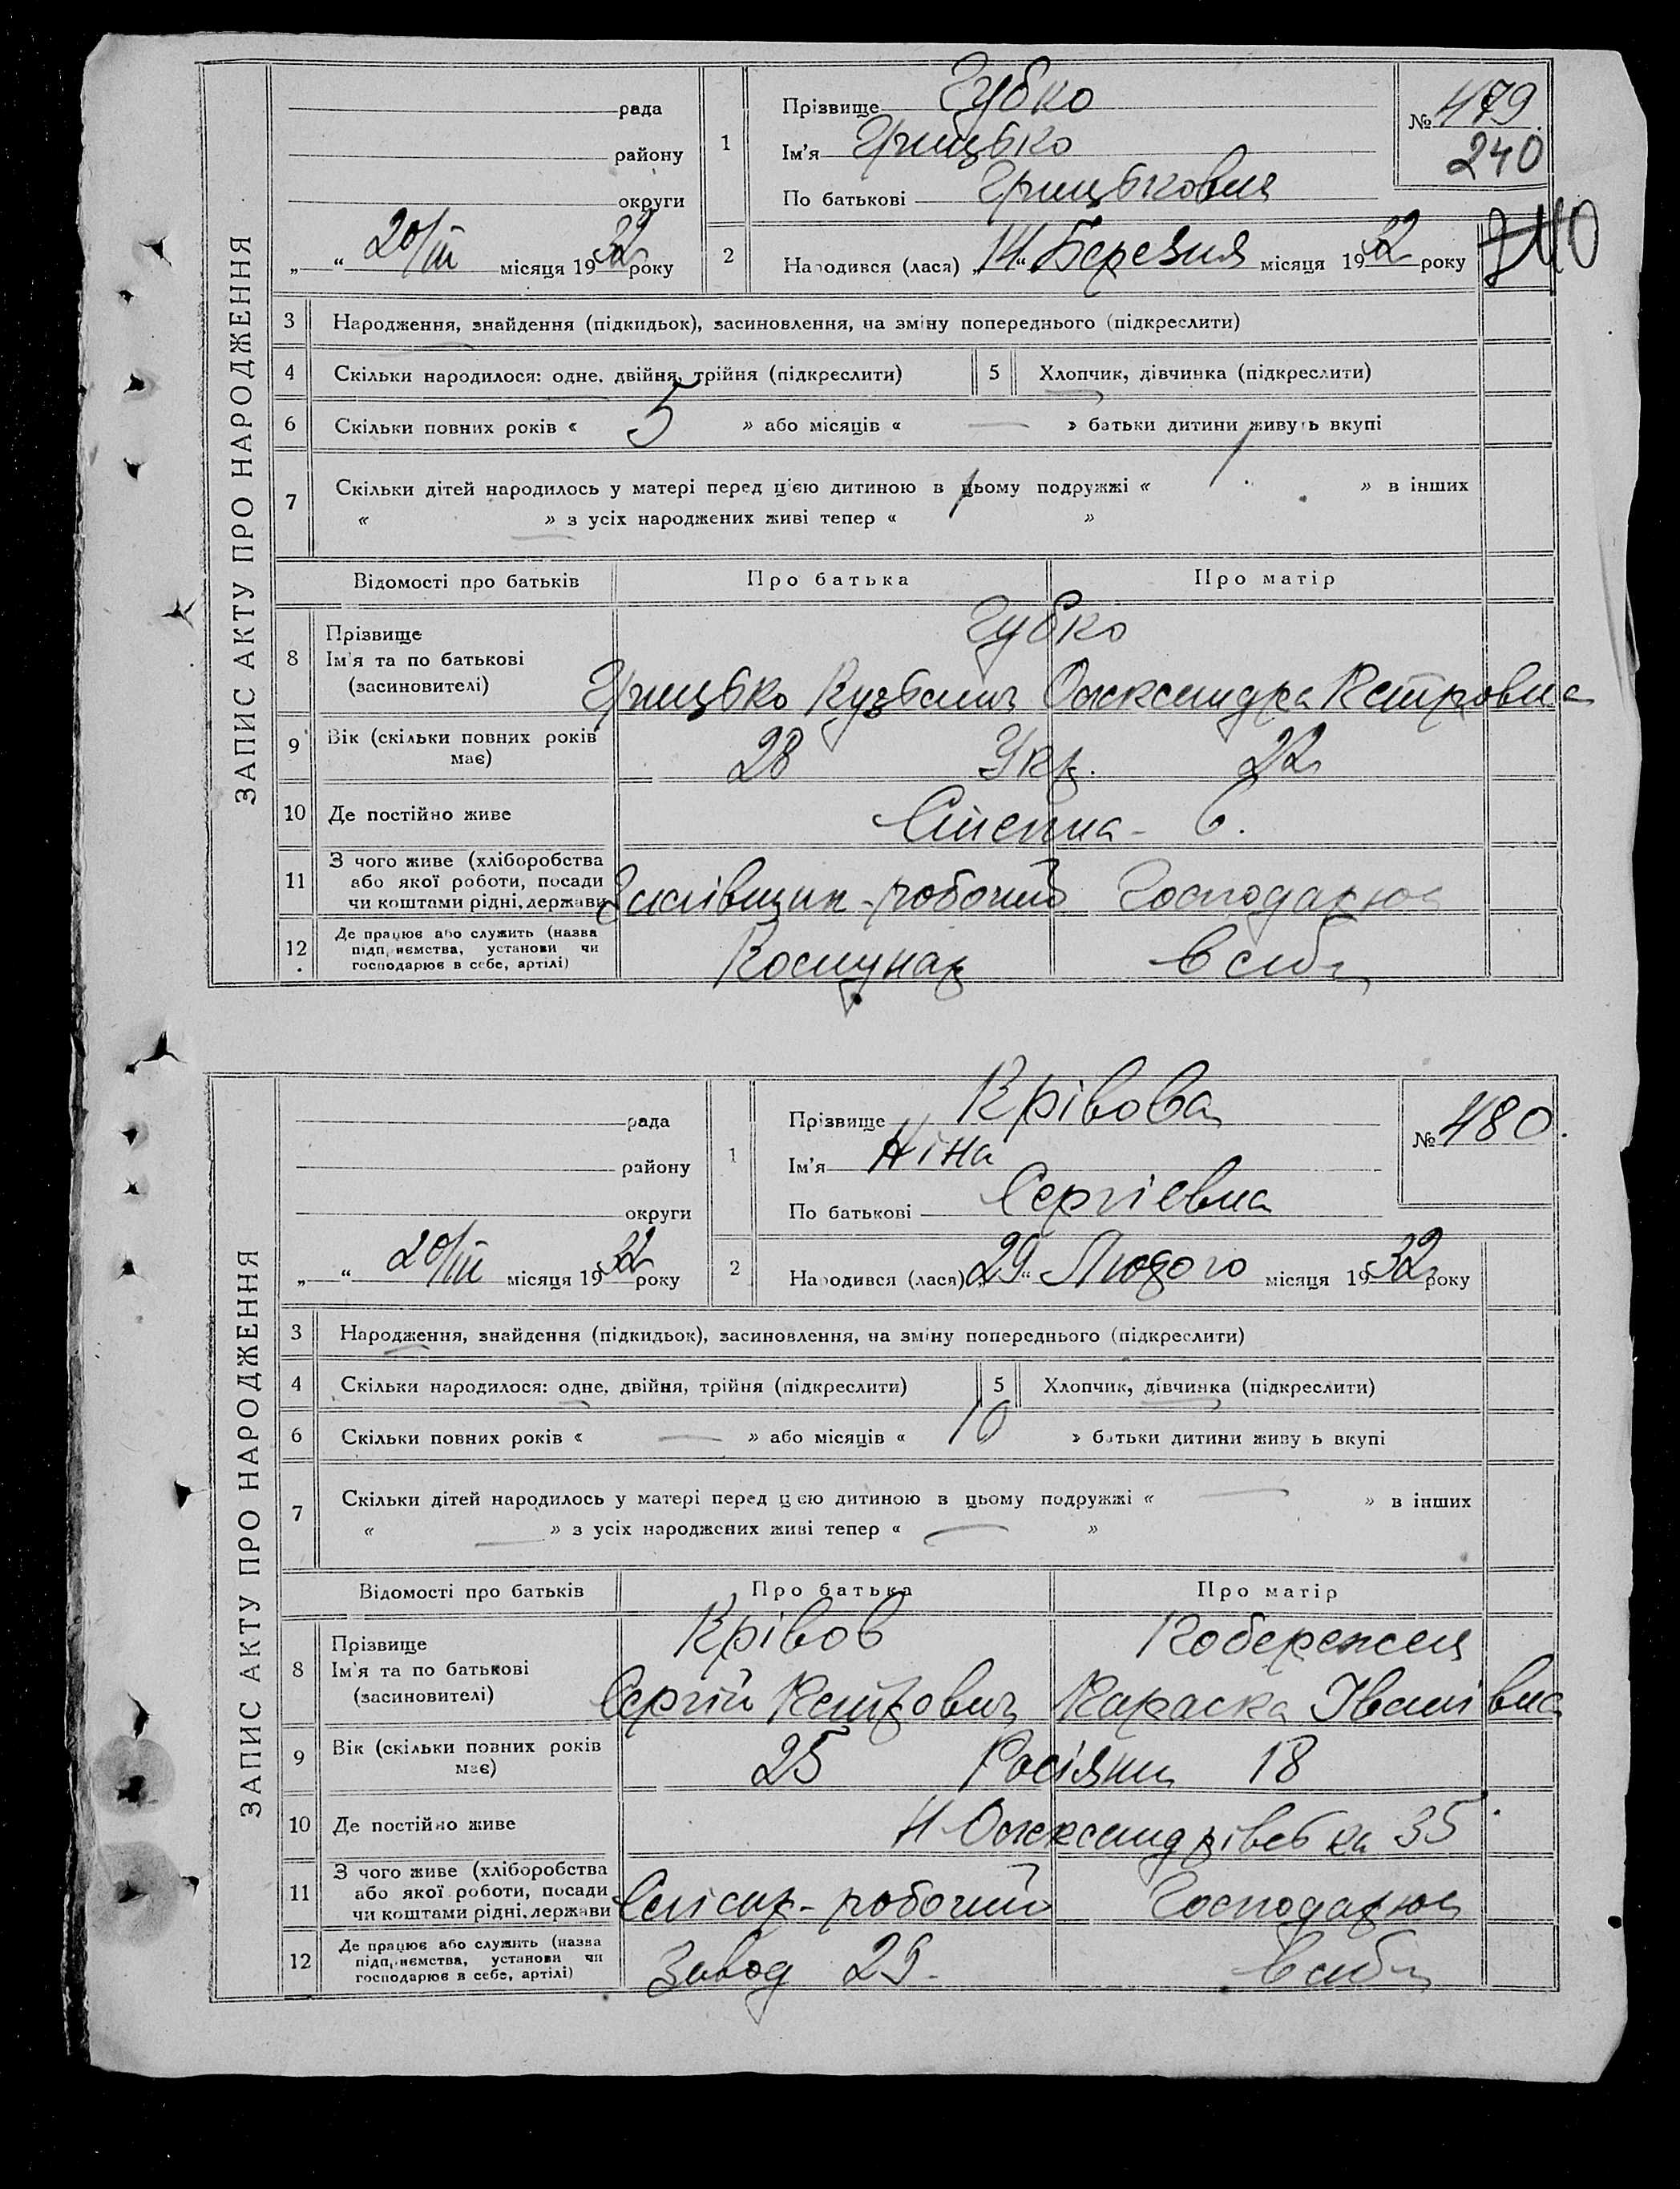 ЗАПИС АКТУ ПРО НАРОДЖЕННЯ
рада
району
округи
„ “ 20/III місяця 1932 року
1
Прізвище Губко
Ім'я Грицько
По батькові Грицькович
№ 479
240
2
Народився (лася) „14“ Березня місяця 1932 року
240
3 Народження, знайдення (підкидьок), засиновлення, на зміну попереднього (підкреслити)
4 Скільки народилося: одне, двійня, трійня (підкреслити) 5 Хлопчик, дівчинка (підкреслити)
6 Скільки повних років « 5 » або місяців « — » батьки дитини живуть вкупі
7 Скільки дітей народилось у матері перед цією дитиною в цьому подружжі « 1 » в інших
« — » з усіх народжених живі тепер « 1 »
Відомості про батьків Про батька Про матір
8 Прізвище Губко
Ім'я та по батькові
(засиновителі) Грицько Кузьмич Олександра Петровна
9 Вік (скільки повних років має) 28 Укр. 22
10 Де постійно живе Степна - 6.
11 З чого живе (хліборобства
або якої роботи, посади
чи коштами рідні, держави робочий Господарює
12 Де працює або служить (назва
підприємства, установи чи
господарює в себе, артілі) Комунар в себе
ЗАПИС АКТУ ПРО НАРОДЖЕННЯ
рада
району
округи
„ “ 20/III місяця 1932 року
1
Прізвище Крівова
Ім'я Ніна
По батькові Сергіевна
№ 480.
2
Народився (лася) „29“ Лютого місяця 1932 року
3 Народження, знайдення (підкидьок), засиновлення, на зміну попереднього (підкреслити)
4 Скільки народилося: одне, двійня, трійня (підкреслити) 5 Хлопчик, дівчинка (підкреслити)
6 Скільки повних років « — » або місяців « 10 » батьки дитини живуть вкупі
7 Скільки дітей народилось у матері перед цією дитиною в цьому подружжі « — » в інших
« — » з усіх народжених живі тепер « — »
Відомості про батьків Про батька Про матір
8 Прізвище Крівов Кобережня
Ім'я та по батькові
(засиновителі) Сергій Петрович Параска Іванівна
9 Вік (скільки повних років має) 25 Росіяни 18
10 Де постійно живе Н Олександрівська 35
11 З чого живе (хліборобства
або якої роботи, посади
чи коштами рідні, держави Слісар - робочий Господарює
12 Де працює або служить (назва
підприємства, установи чи
господарює в себе, артілі) Завод 29. в себе